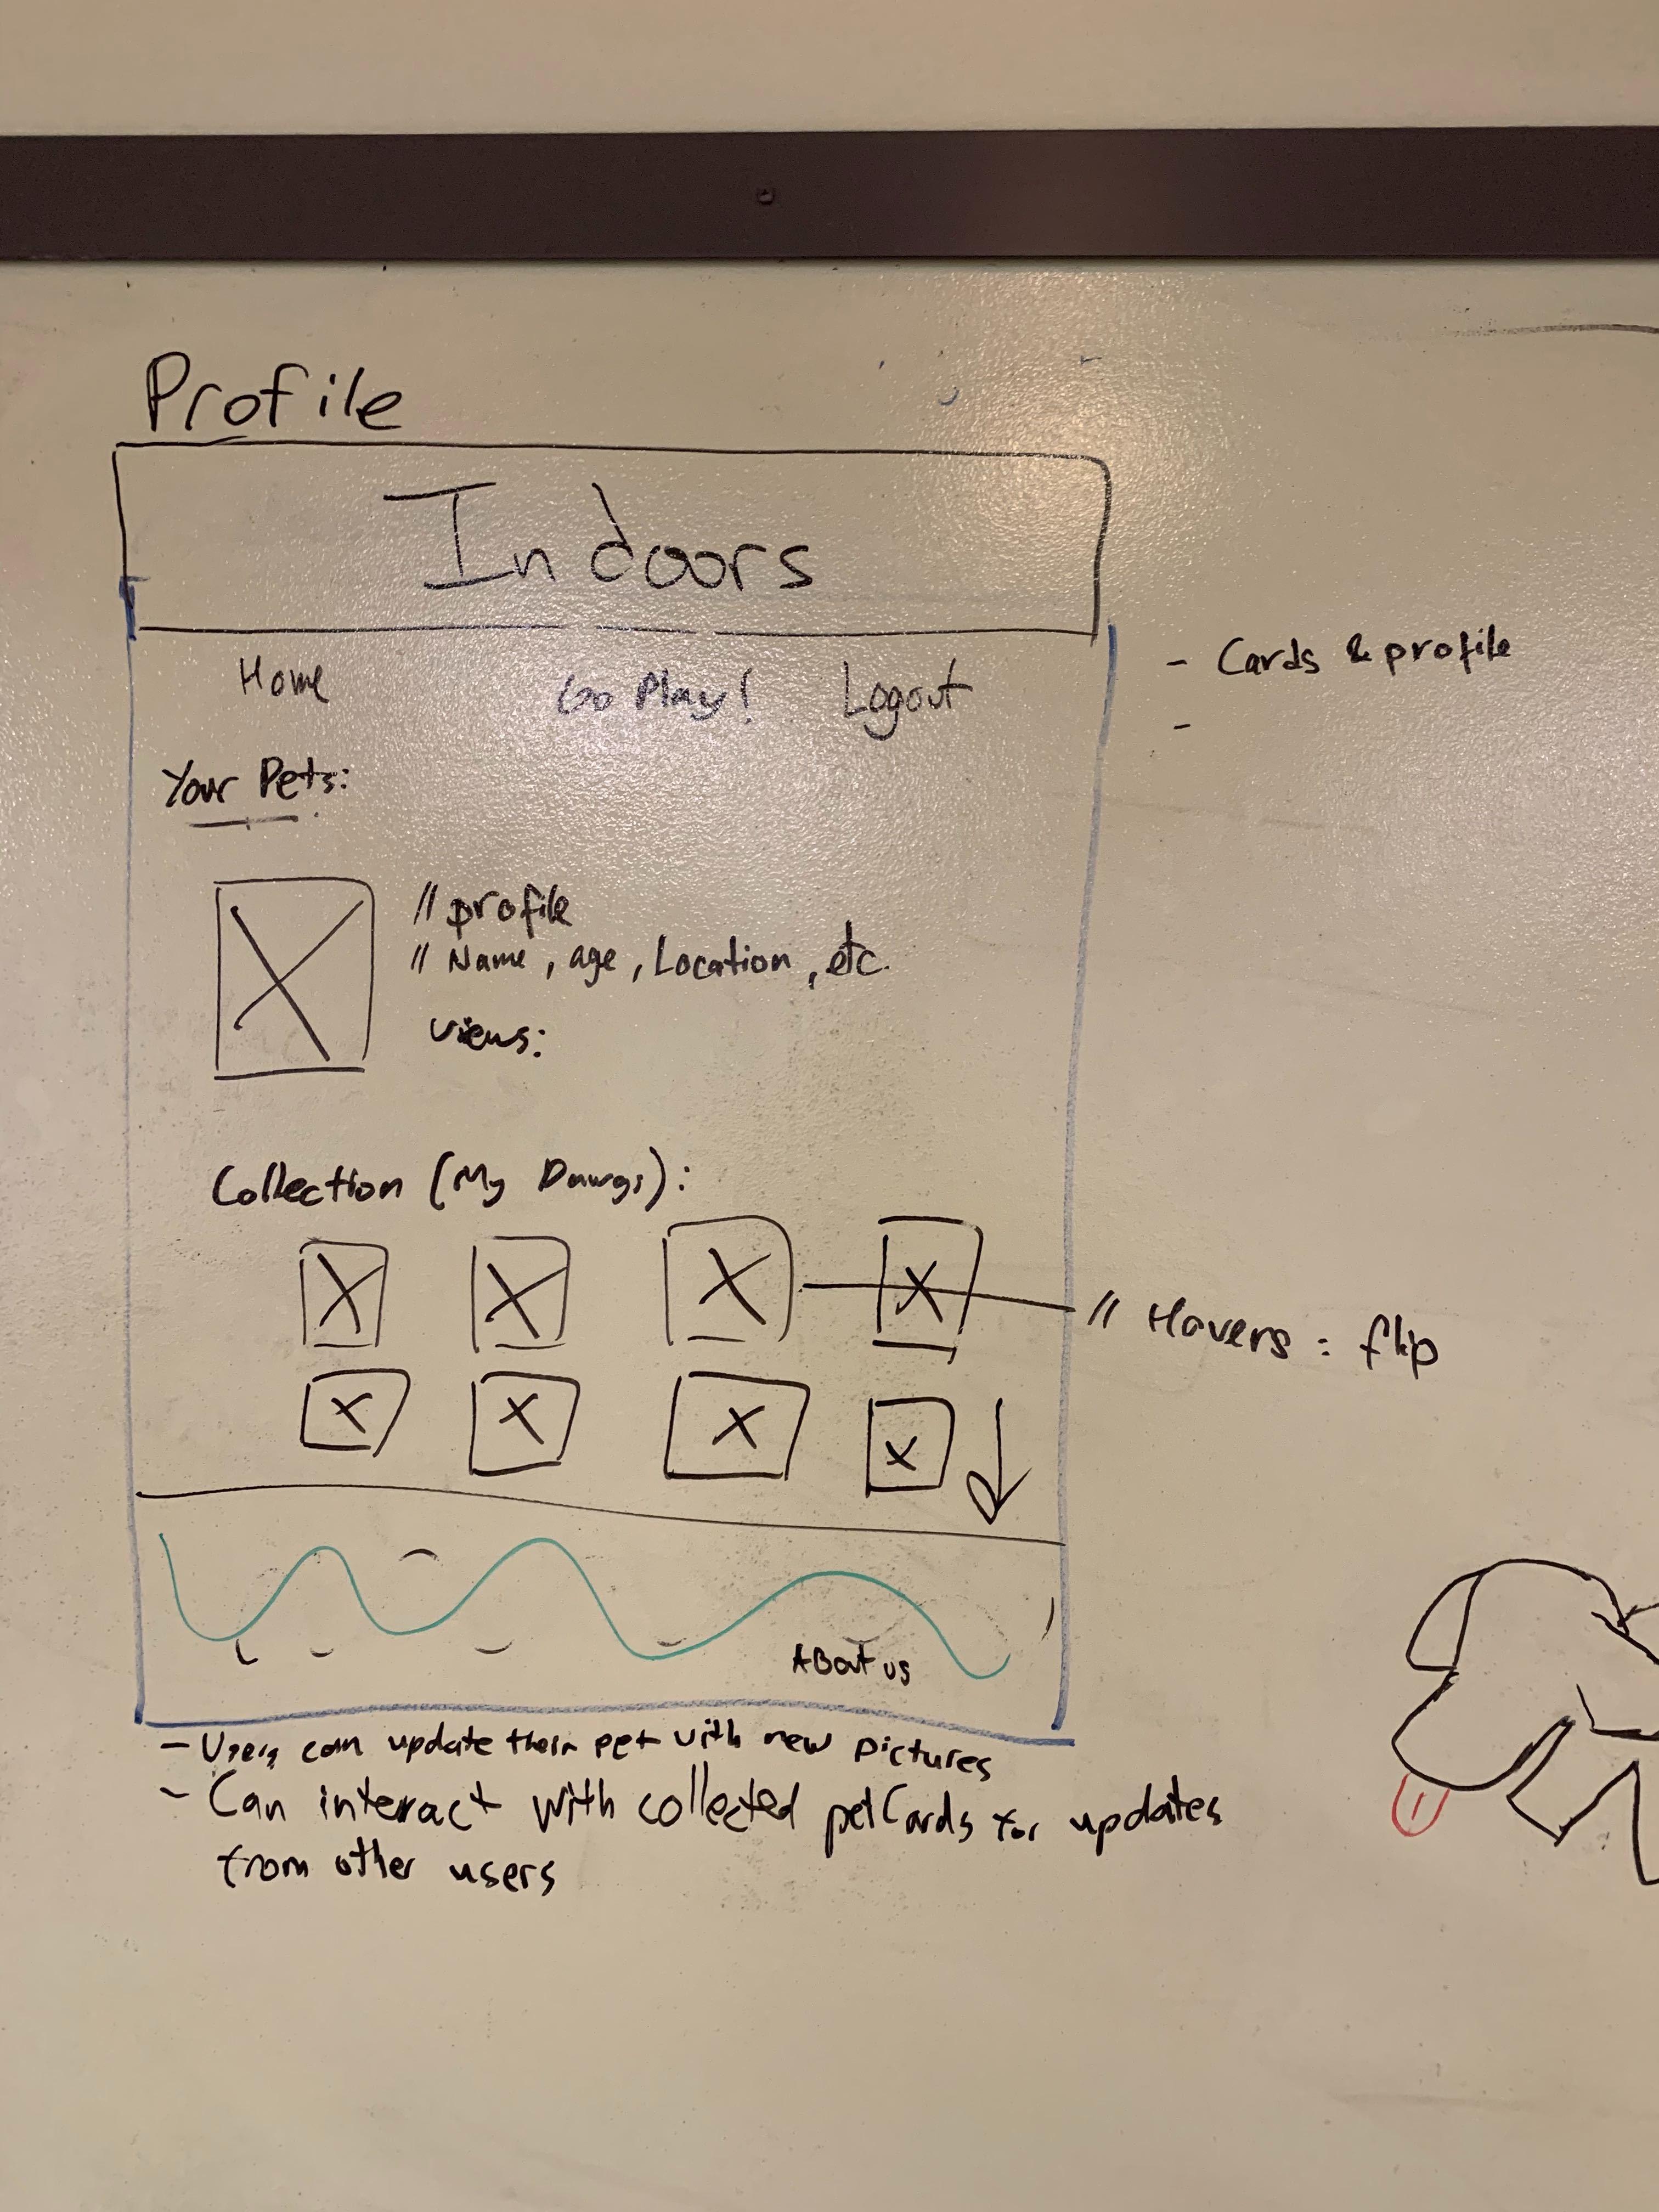 Profile
Indoors
Home Go Play! Logout
- Cards & profile
-
Your Pets:
// profile
// Name, age, Location, etc.
Views:
Collection (My Dawgs):
// Hovers: flip
ABout us
- Users can update their pet with new pictures
- Can interact with collected petCards for updates
from other users